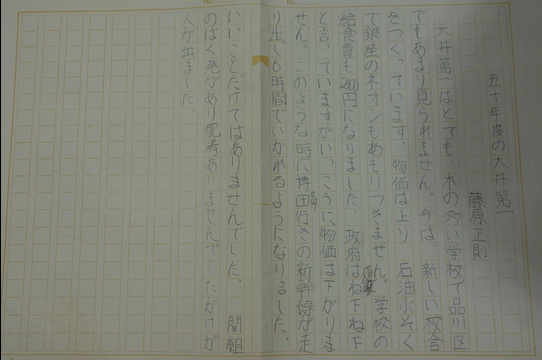 五十年度の大井第一
藤原正則
大井第一はとても、木の多い学校で品川区
でもあまり見られません。今は、新しい校舎
をつくっています。物価は上り、石油ぶそく
で銀座のネオンもあまりつきません。学校の
給食費も200円になりました。政府はね下ね下
と言っていますがいっこうに物価は下がりま
せん。このような時に博田行きの新幹線が走
り出し6時間でいかれるようになりました。
いいことだけではありませんでした。間組
のばく発があり死者ありませんで たけが
人が出ました。